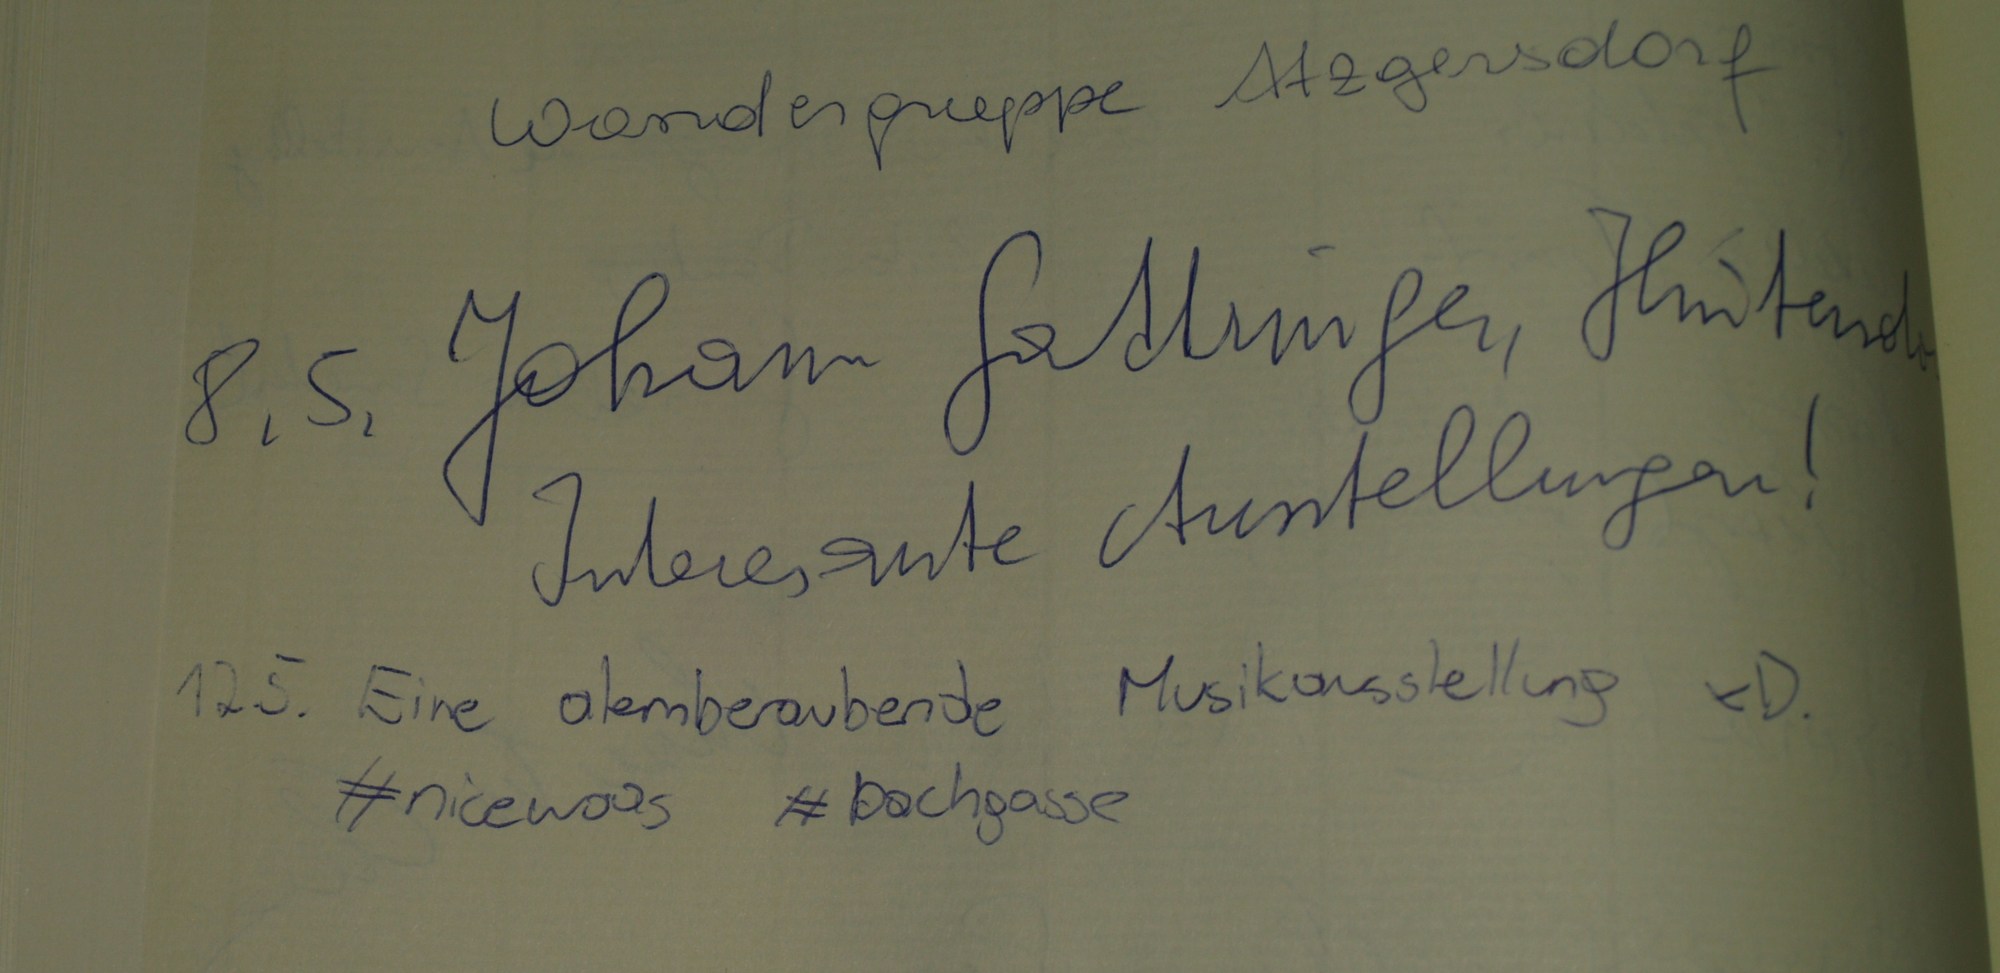 Wandergruppe Atzgersdorf
8.5. Johann Gattringer,
Interesante Ausstellungen!
12.5. Eine atemberaubende Musikausstellung xD.
#nicewoas #bachgasse